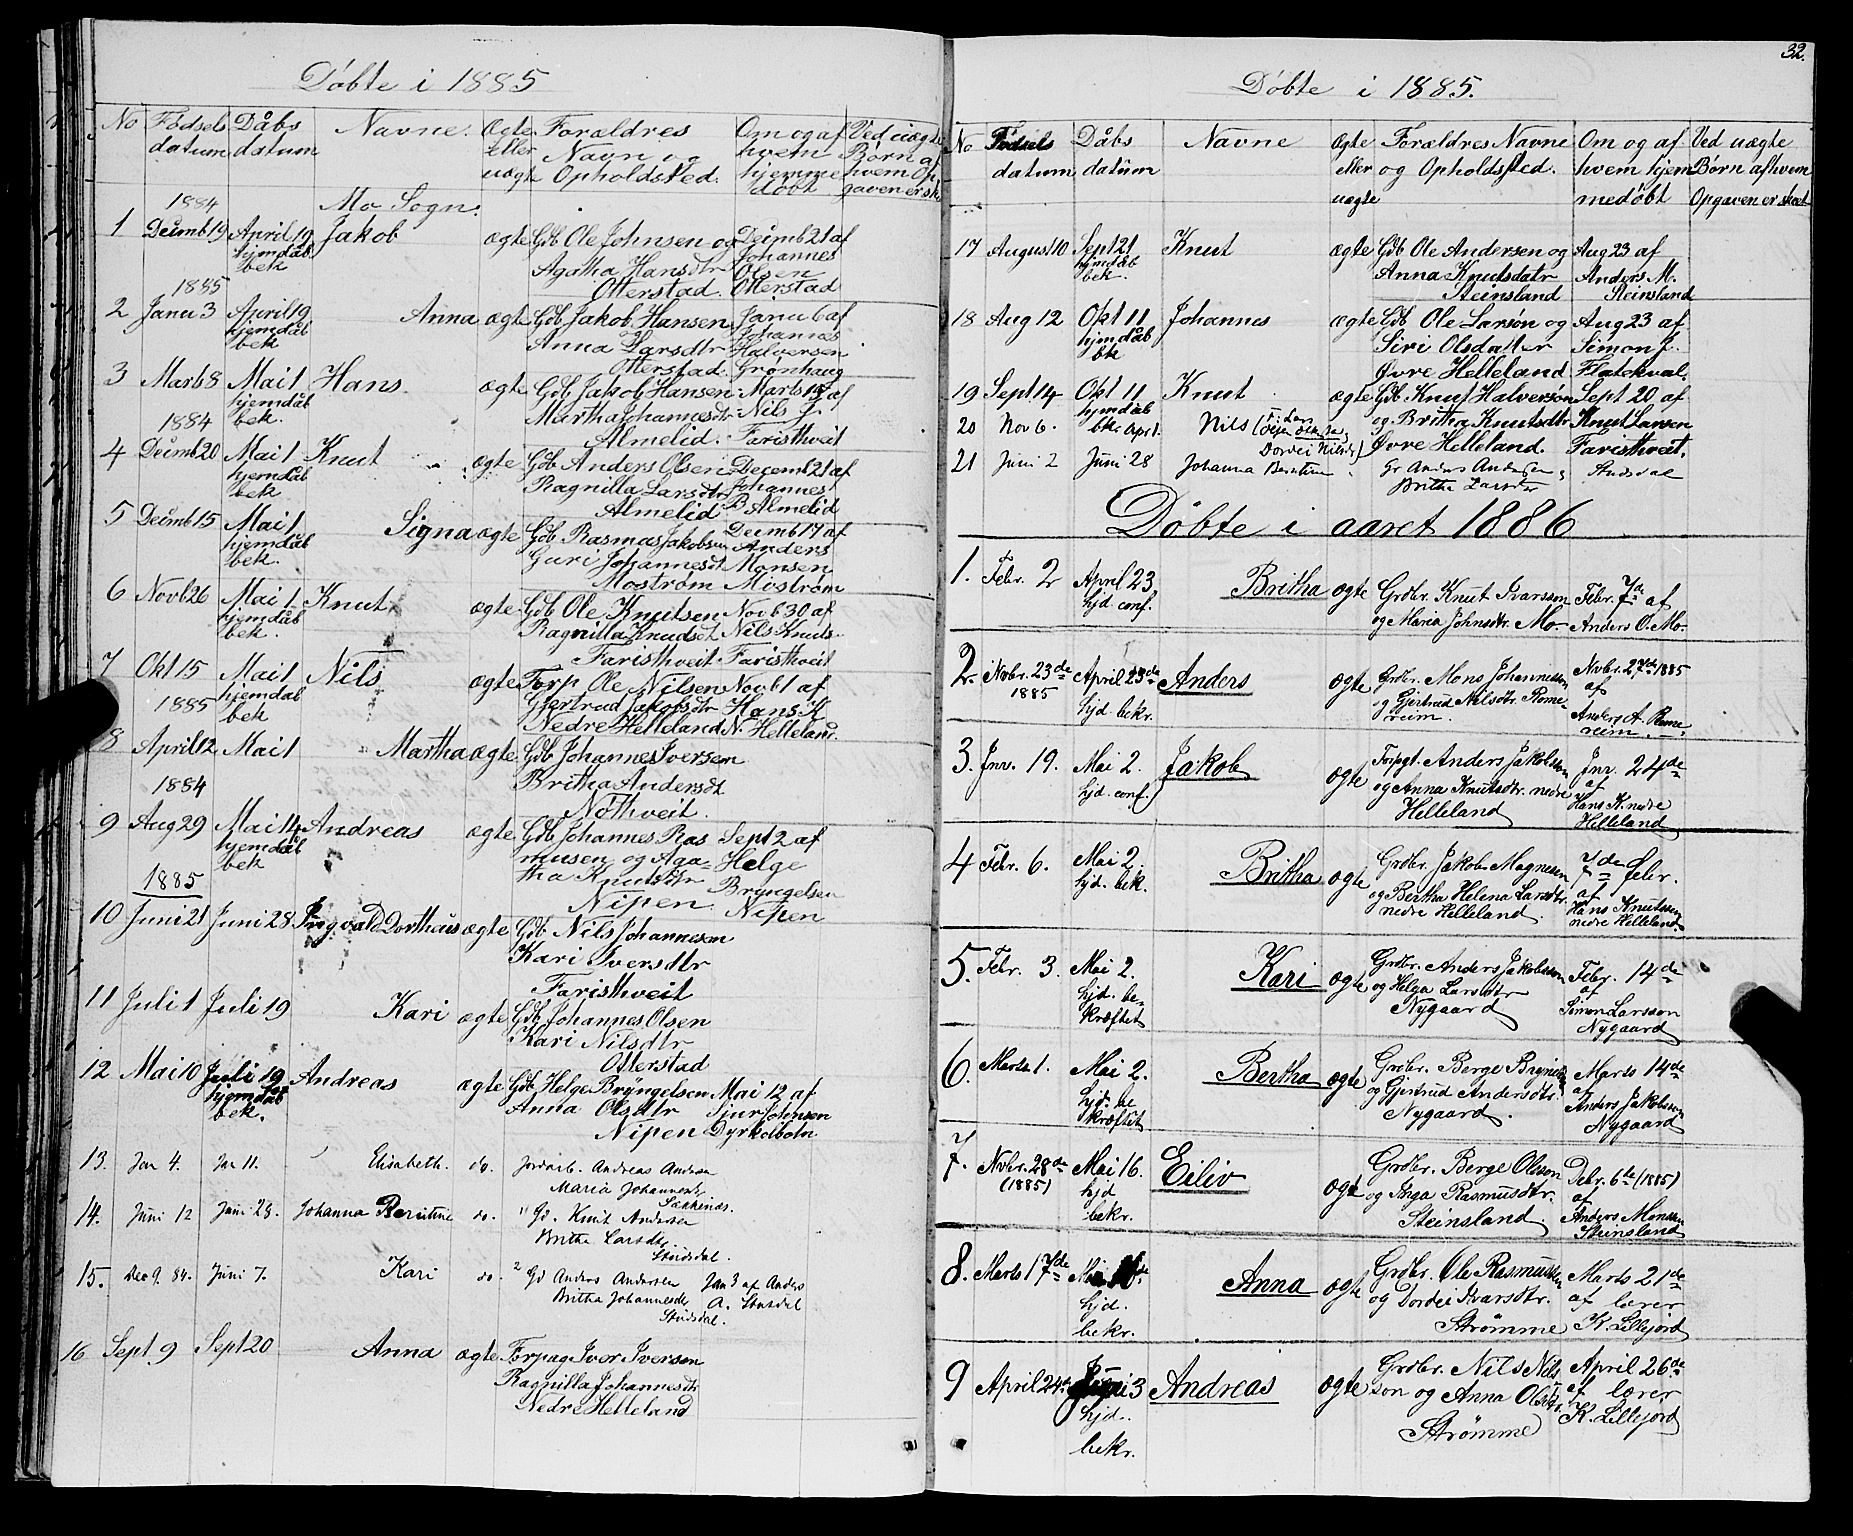 Döbte i 1885
No Födsels datum Dåbs datum Navne. Ægte eller uægte Foraldres Navn og Opholdsted. Om og af hvem hjemme döbt Ved uægte Börn af hvem Opgaven er sk
1884 Mo Sogn.
1 Deimb 19 April 19 Jakob ægte Gdb Ole Johnsen og Deimb 21 af
hjemdåb bek Agatha Hansdtr Johannes Olsen
1885 Otterstad. Otterstad
2 Janu 3 April 19 Anna ægte Gdb Jakob Hansen Janu 6 af
hjemdåb bek Anna Larsdtr Johannes Halversen
Otterstad Grönhaug
3 Marts 8 Mai 1 Hans. ægte Gdb Jakob Hansen Marts 15 af
hjemdåb bek. Martha Johannesdtr Nils J.
1884 Almelid. Faristhveit
4 Deimb 20 Mai 1 Knut ægte Gdb Anders Olsen Decemb 21 af
hjemdåb bek Ragnilla Larsdtr Johannes
Almelid B Almelid
5 Deimb 15 Mai 1 Signa ægte Gdb Rasmus Jakobsen Deimb 17 af
hjemdåb bek. Guri Johannesdt Anders Monsen
Moström Moström
6 Novb 26 Mai 1 Knut ægte Gdb Ole Knutsen Novb 30 af
hjemdåb bek. Ragnilla Knudsdt Nils Knuts
Faristhveit Faristhveit
7 Okt 15 Mai 1 Nils ægte Forp Ole Nilsen Novb 1 af
1885 hjemdåb bek Gjertrud Jakobsdtr Hans K
Nedre Helleland N. Helleland.
8 April 12 Mai 1 Martha ægte Gdb Johannes Iversen
Britha Andersdt
1884 Nöthveit.
9 Aug 29 Mai 14 Andreas ægte Gdb Johannes Ras Sept 2 af
hjemdåb bek musen og Aga= Helge
1885 tha Knutsdtr Bryngelsen
Nipen. Nipen
10 Juni 21 Juni 28 Ingvald Dorthaus ægte Gdb Nils Johannesen
Kari Iversdtr
Faristhveit
11 Juli 1 Juli 19 Kari ægte Gdb Johannes Olsen
Kari Nilsdtr
Otterstad
12 Mai 10 Juli 19 Andreas ægte Gdb Helge Bryngelsen Mai 12 af
hjemdåb bek. Anna Olsdtr Sjur Johnsen
Nipen Dyrkolbotn
13. Jan 4. Jan 11. Elisabeth. do. Jordarb. Andreas Andersen
Maria Johannesdtr
14. Juni 12 Juni 28. Johanna Berntine do. " Gd. Knut Andersen
Britha Larsdtr.
Stusdal.
15. Dec 9. 84. Juni 7. Kari do. Gd Anders Andersen Jan 3 af Anders
Britha Johannesdtr A. Stusdal
Stusdal.
16 Sept 9 Sept 20 Anna ægte Forpag Iver Iversen
Ragnilla Johannesdtr
Nedre Helleland
32.
Döbte i 1885.
No Födsels datum Dåbs datum Navne Ægte eller uægte Foraldres Navne og Opholdsted. Om og af hvem hjemmedöbt Ved uægte Börn af hvem Opgaven er skeet
17 August 10 Sept 21 Knut ægte Gdb Ole Andersen og Aug 23 af
hjemdåb bek. Anna Knutsdatr Anders M.
Steinsland Steinsland
18 Aug 12 Okt 11 Johannes ægte Gdb Ole Larsön og Aug 23 af
hjemdåb bk Siri Olsdatter Simon J.
Övre Helleland Flatekval.
19 Sept 14 Okt 11 Knut ægte Gdb Knut Halversön Sept 20 af
hjemdåb bk. og Britha Knutsdtr Knut Larsen
Övre Helleland. Faristhveit.
20 Nov 6. Apr 1. Nils Dordei Nilsdtr)
21 Juni 2 Juni 28 Johanna Berntine Gr Anders Andersen
Britha Larsdtr Stusdal
Döbte i aaret 1886
1. Febr. 2 April 23 Britha ægte Grdbr. Knut Ivarsson Febr. 7de af
hjd. conf. og Maria Johnsdtr. Mo. Anders O. Mo.
2. Nvbr. 23de April 23de Anders ægte Grdbr. Mons Johannesson Nvbr. 27de 1885
1885 hjd. bekr. og Gjertrud Nilsdtr. Rome- af
reim. Anders A. Rome
reim.
3. Jnr. 19. Mai 2. Jakob ægte Forpgt. Anders Jakobsson Jnr. 24de
hjd. conf. og Anna Knutsdtr. nedre af
Helleland Hans K. nedre
Helleland
4 Febr. 6. Mai 2. Britha ægte Grdbr. Jakob Magnesen 7de Febr.
hjd. bek. og Bertha Helena Larsdtr. af
nedre Helleland. Hans Knutssen
nedre Helleland.
5. Febr. 3. Mai 2. Kari ægte Grdbr. Anders Jakobsson Febr. 14de
hjd. be- og Helga Larsdtr af
kræftet Nygaard Simon Larsson
Nygaard
6. Marts 1. Mai 2. Bertha ægte Grdbr. Berge Brynils Marts 14de
hjd. be og Gjertrud Andersdtr. af
kræftet Nygaard. Anders Jakobsson
Nygaard
7. Nvbr. 28de Mai 16. Eiliv ægte Grdbr. Berge Olsson Debr. 6te (1885)
(1885) hjd og Inga Rasmusdtr. af
bekr. Steinsland. Anders Monssen
Steinsland
8. Marts 17de Anna ægte Grdbr. Ole Rasmussen Marts 21de
hjd. og Dordei Ivarsdtr. af lærer
bekr. Strömme K. Lillejord
9 April 24de Juni 3 Andreas ægte Grdbr. Nils Nils April 26de
hjd. son og Anna Olsdtr. af lærer
bekr. Strömme K. Lillejord